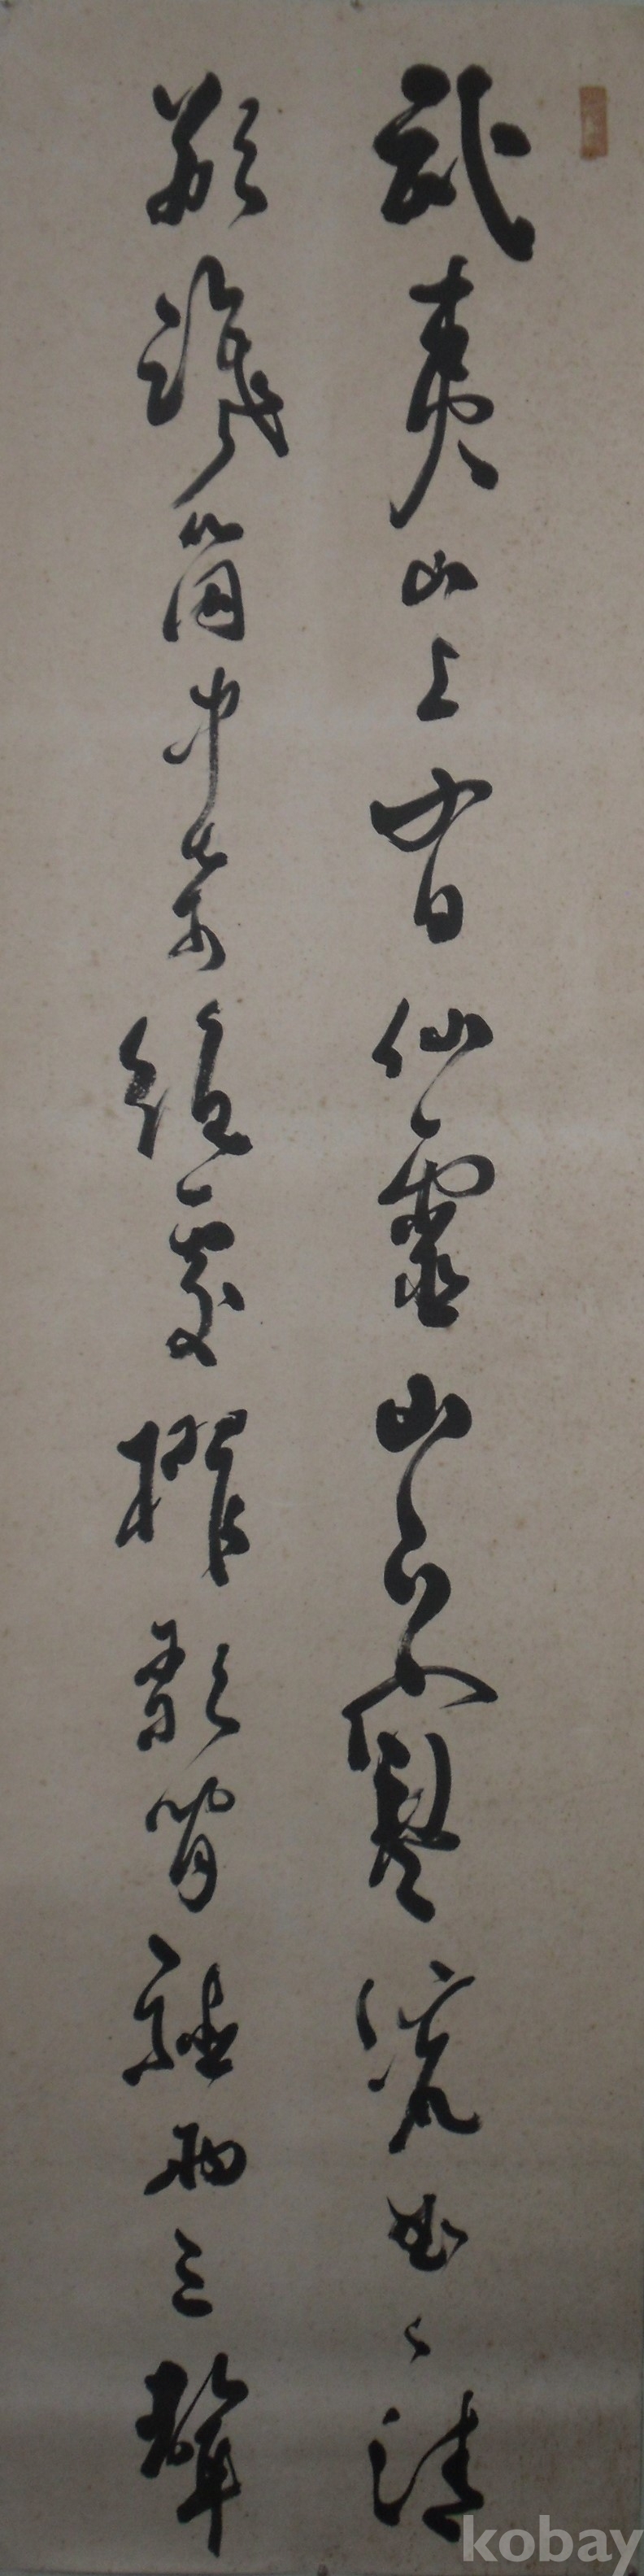 武夷山上有仙靈山下寒流曲々清
欲識箇中奇絶處櫂歌閒聽兩三聲
kobay